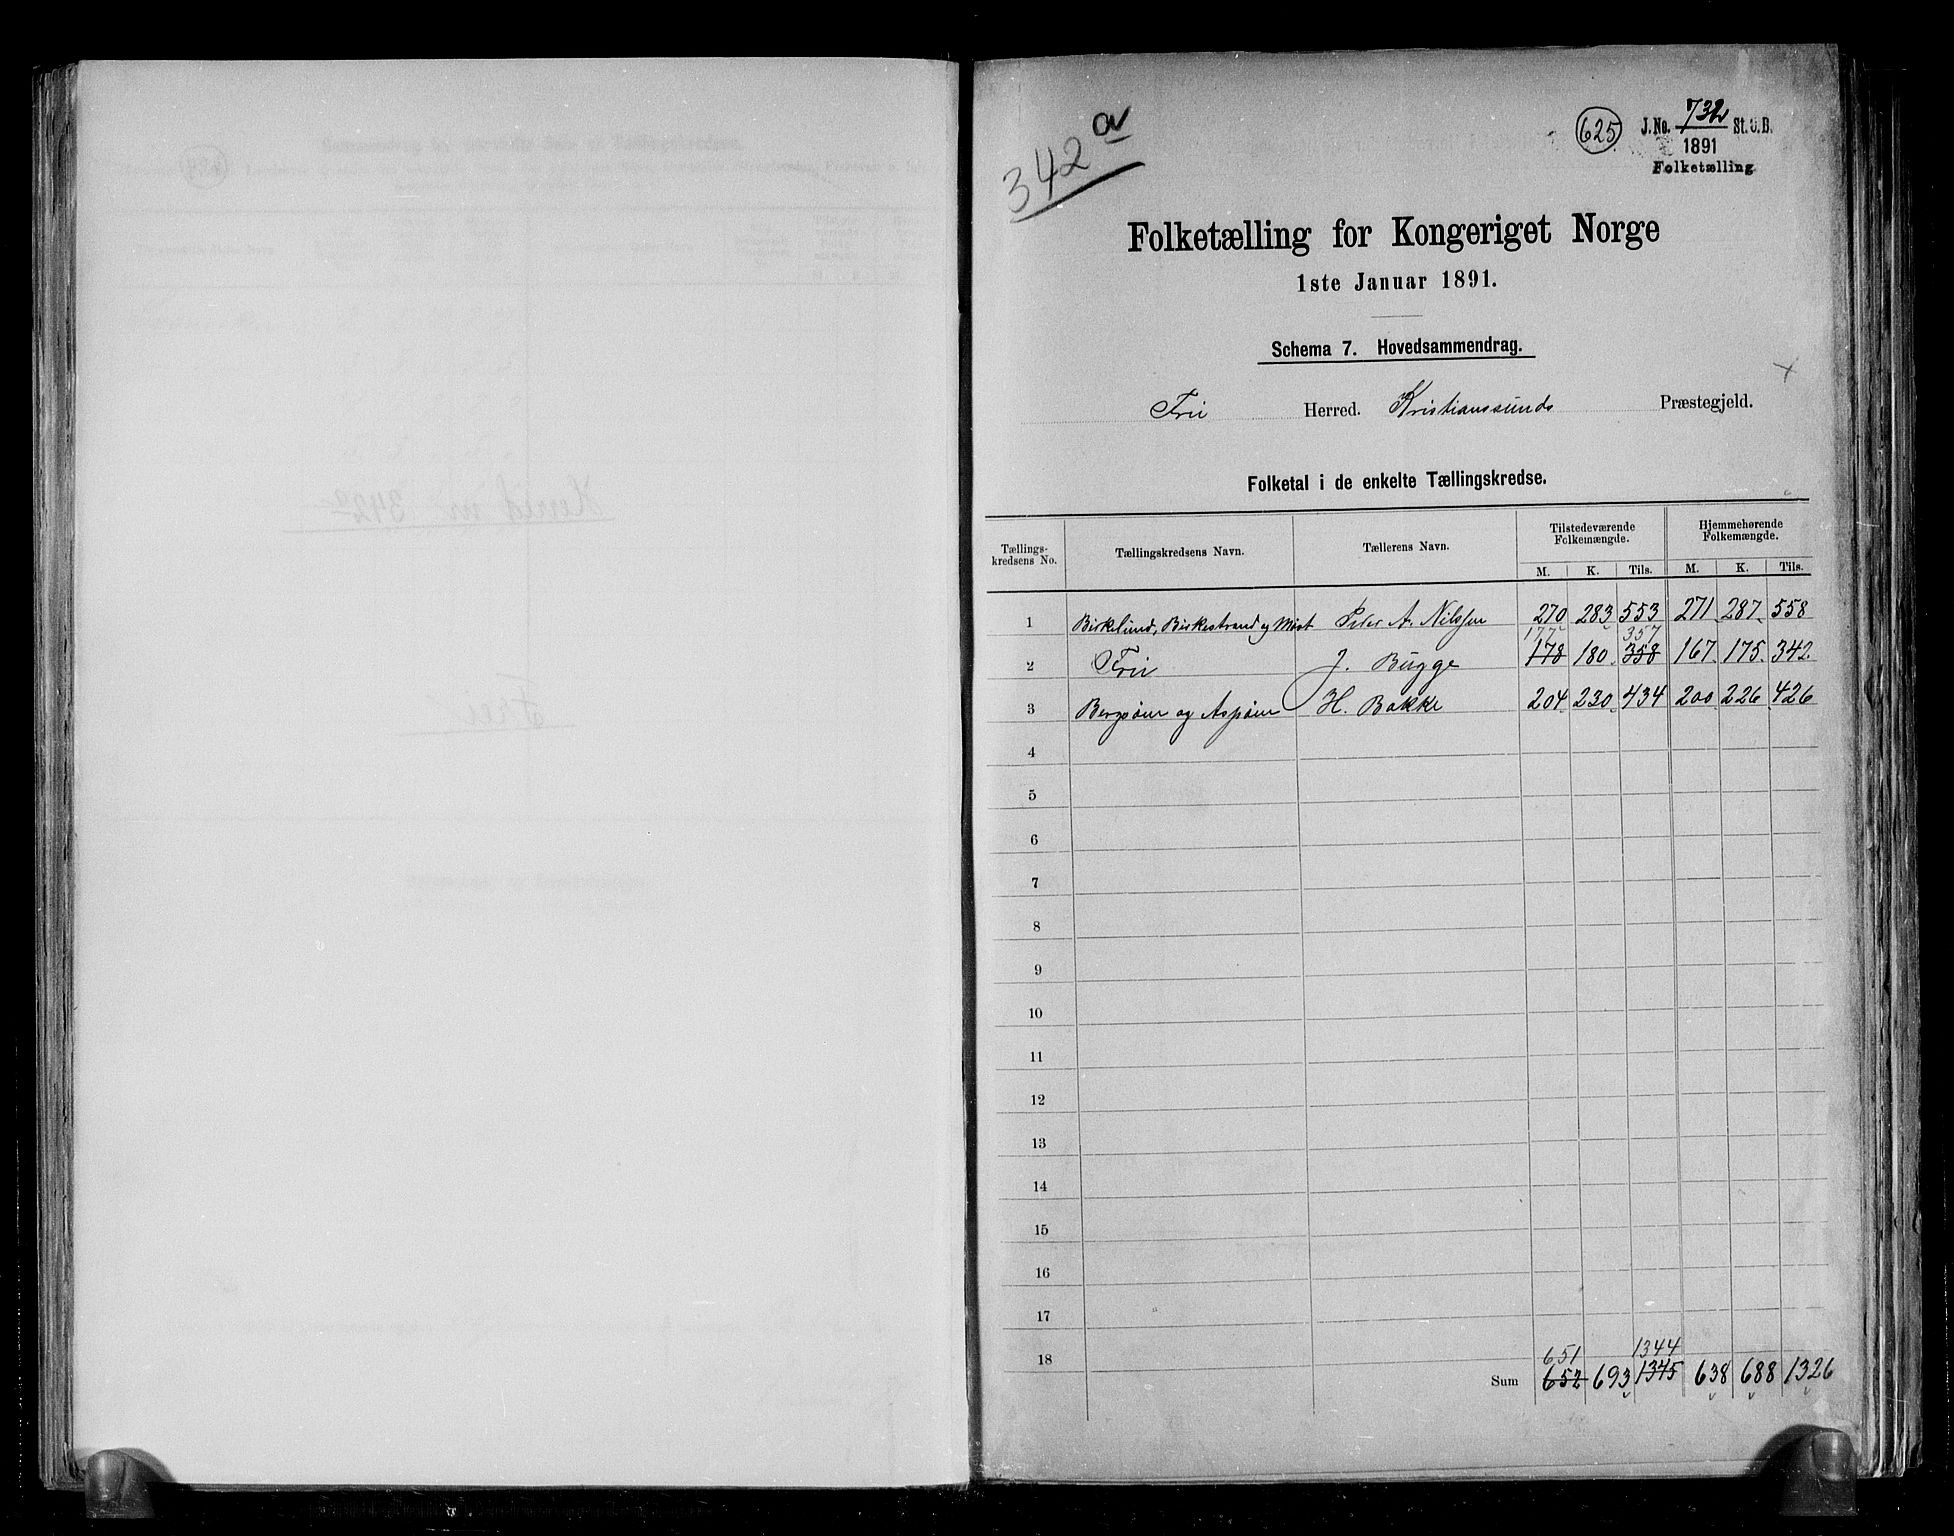 342a
625
J. No. 732 St. O. B.
1891
Folketælling
Folketælling for Kongeriget Norge
1ste Januar 1891.
Schema 7. Hovedsammendrag.
Frei Herred. Kristianssunds Præstegjeld.
Folketal i de enkelte Tællingskredse.
Tællings-kredsens No. Tællingskredsens Navn. Tællerens Navn. Tilstedeværende Folkemængde. Hjemmehørende Folkemængde.
M. K. Tils. M. K. Tils.
1 Birkelund, Birkestrand og Møst Peter A. Nilssen 270 283 553 271 287 558
177 357
2 Frei J. Bugge 178 180 358 167 175 342
3 Bergsøen og Aspøen H. Bakke 204 230 434 200 226 426
4
5
6
7
8
9
10
11
12
13
14
15
16
17
18
651 1344
Sum 652 693 1345 638 688 1326